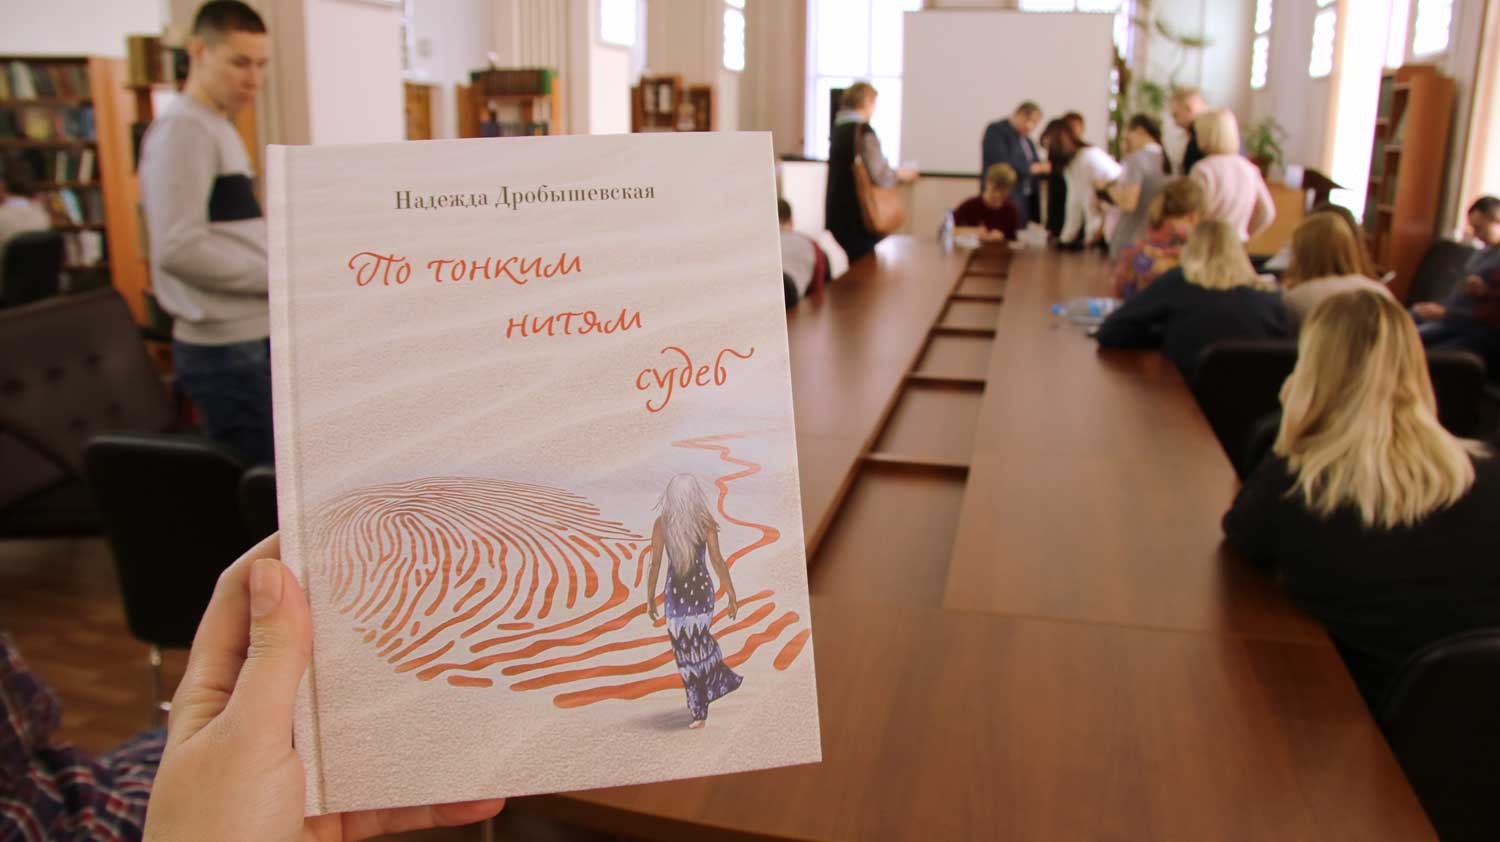 Надежда Дробышевская
По тонким
нитям
судеб